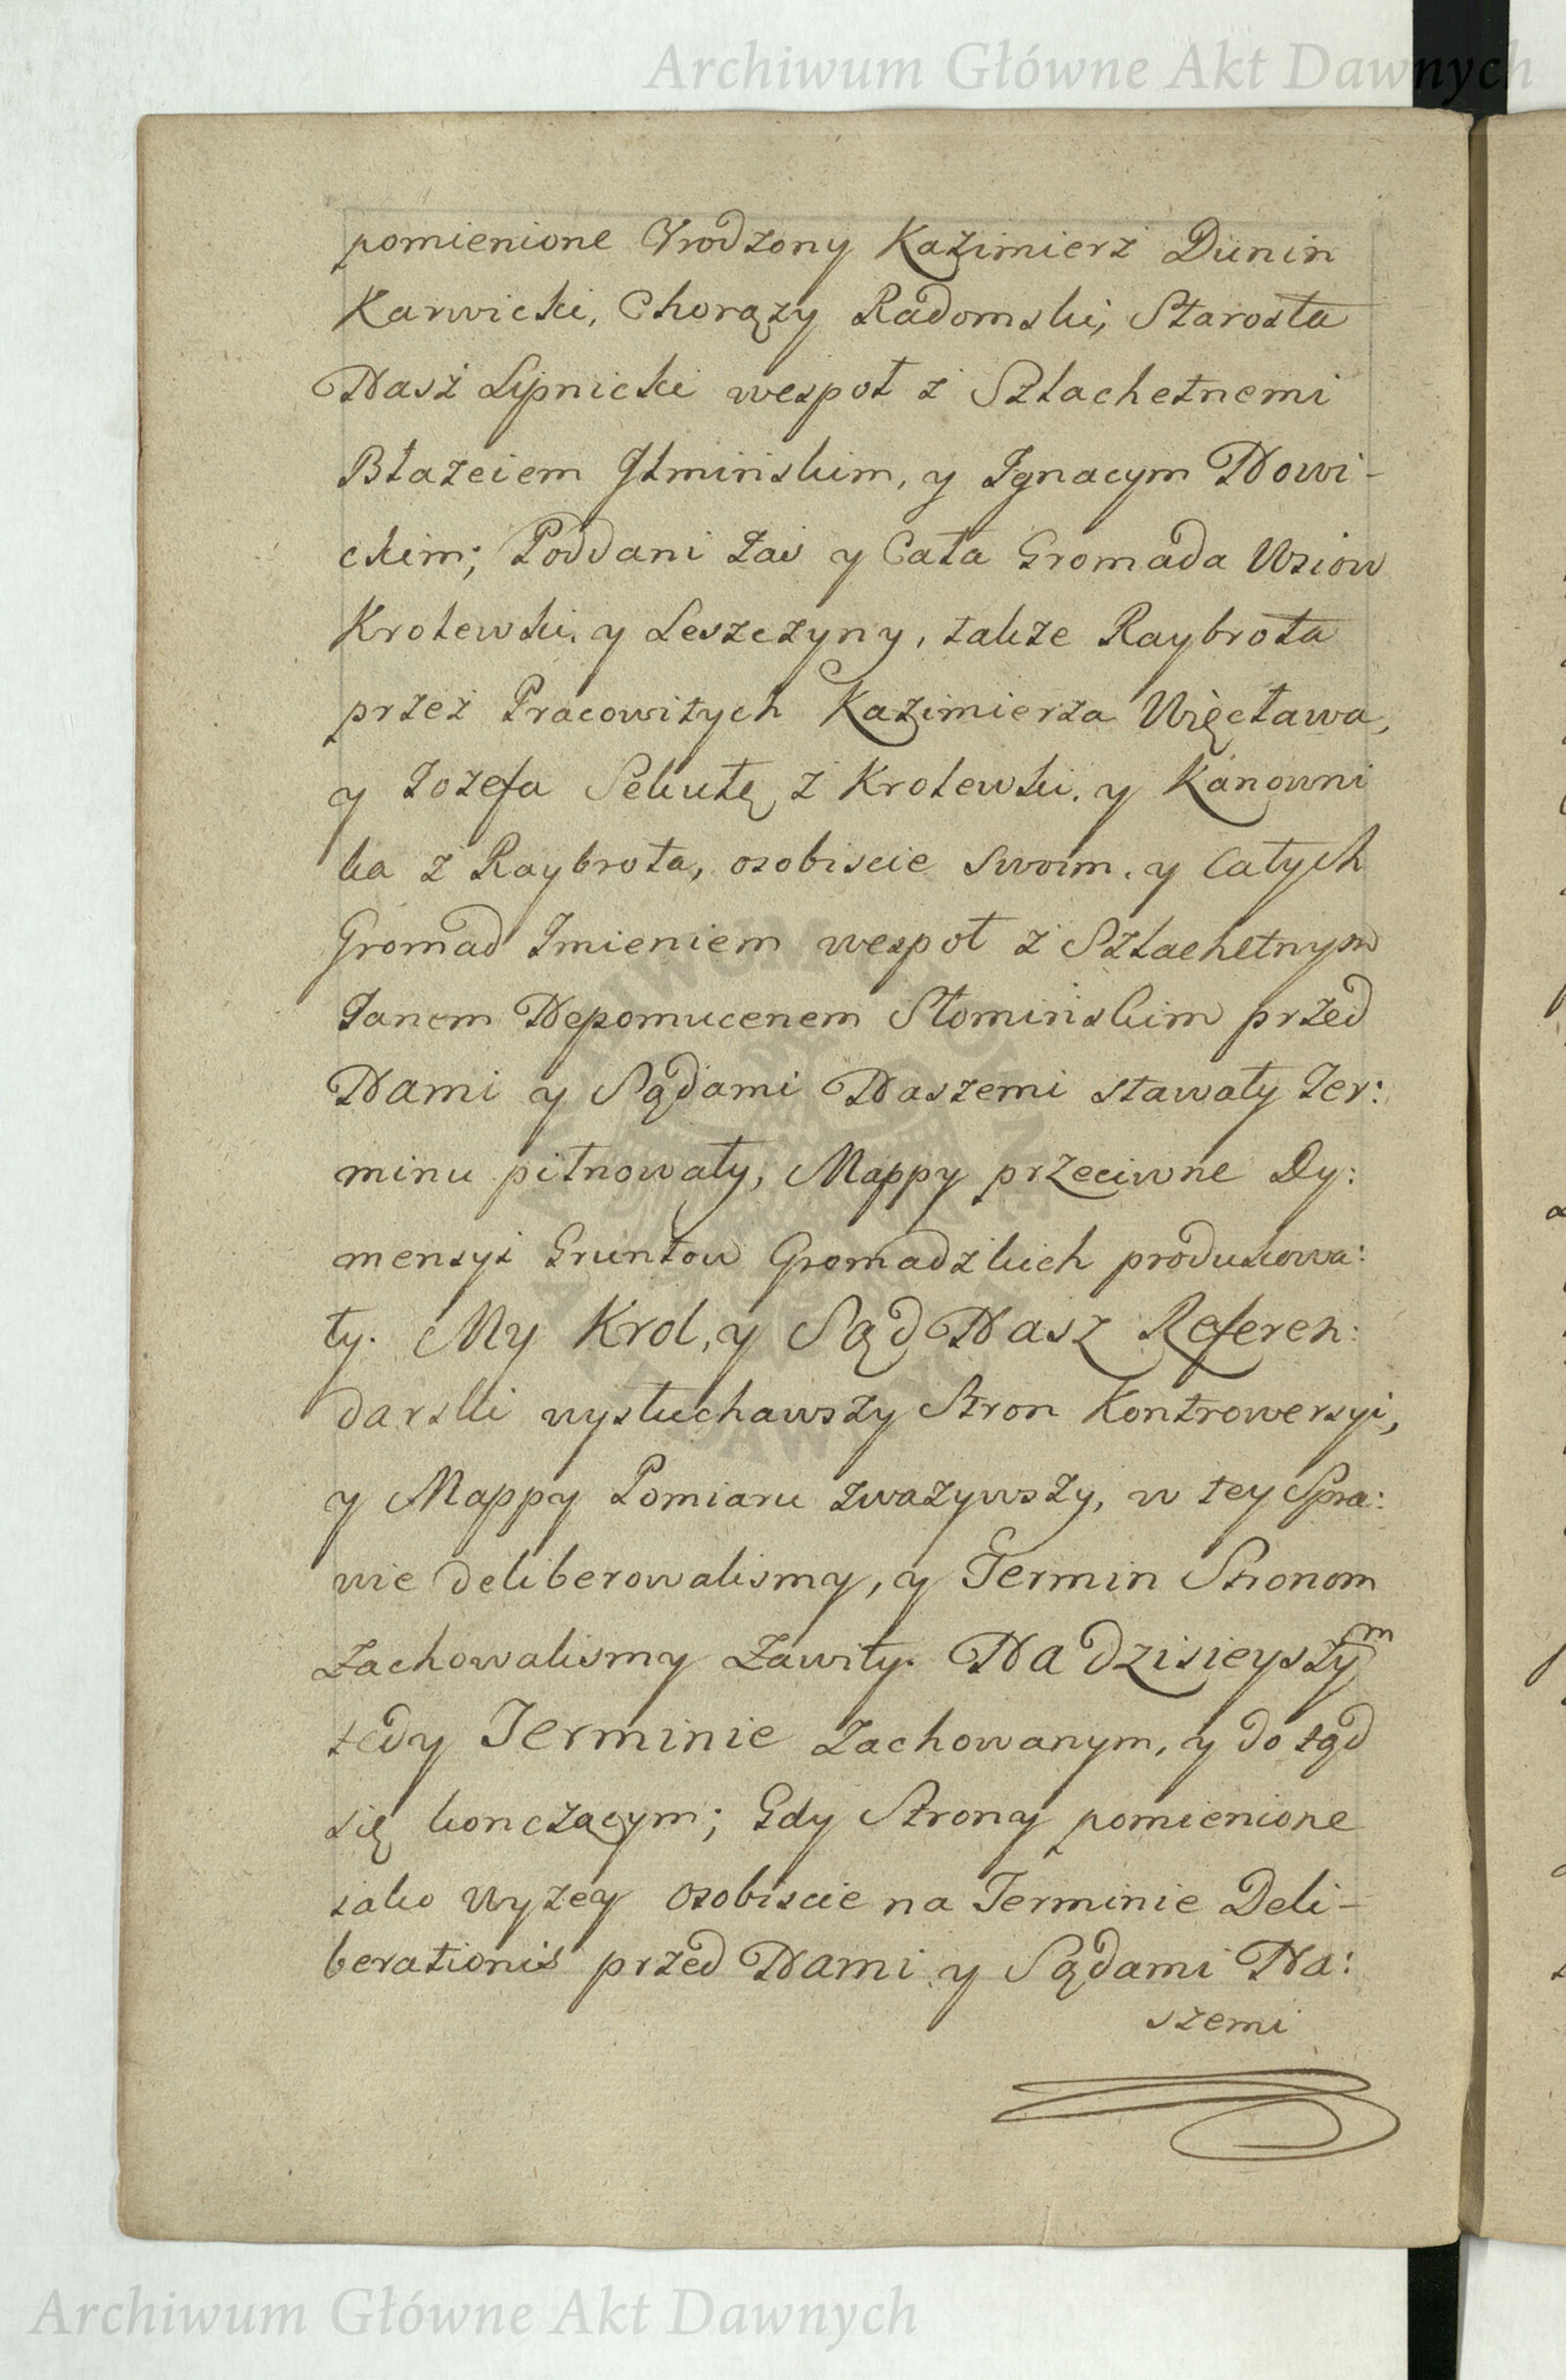 Archiwum Główne Akt Dawnych
pomienione Vrodzony Kazimierz Dunin
Karwicki, Chorązy Radomski, Starosta
Nasz Lipnicki wespoł z Szlachetnemi
Błazeiem Głmińskim, y Ignacym Nowi-
ckim; Poddani zas y Cała Gromada Wsiow
Krolewki, y Leszczyny, takze Raybrota
przez Pracowitych Kazimierza Więcława,
y Jozefa Sekułę z Krolewki, y Kanowni
ka z Raybrota, osobiscie Swoim, y Całych
Gromad Imieniem wespoł z Szlachetnym
Janem Nepomucenem Słomińskim przed
Nami y Sądami Naszemi stawały Ter:
minu pilnowały, Mappy przeciwne Dy:
mensyi Gruntow Gromadzkich produkowa:
ły. My Krol, y Sąd Nasz Referen:
darski wysłuchawszy Stron Kontrowersyi,
y Mappy Pomiaru zwazywszy, w tey Spra:
wie deliberowalismy, y Termin Stronom
Zachowalismy Zawity. Na dzisieyszym
tedy Terminie Zachowanym, y do tąd
się konczącym; Gdy Strony pomienione
iako wyzey osobiscie na Terminie Deli-
berationis przed Nami y Sądami Na:
szemi
Archiwum Główne Akt Dawnych